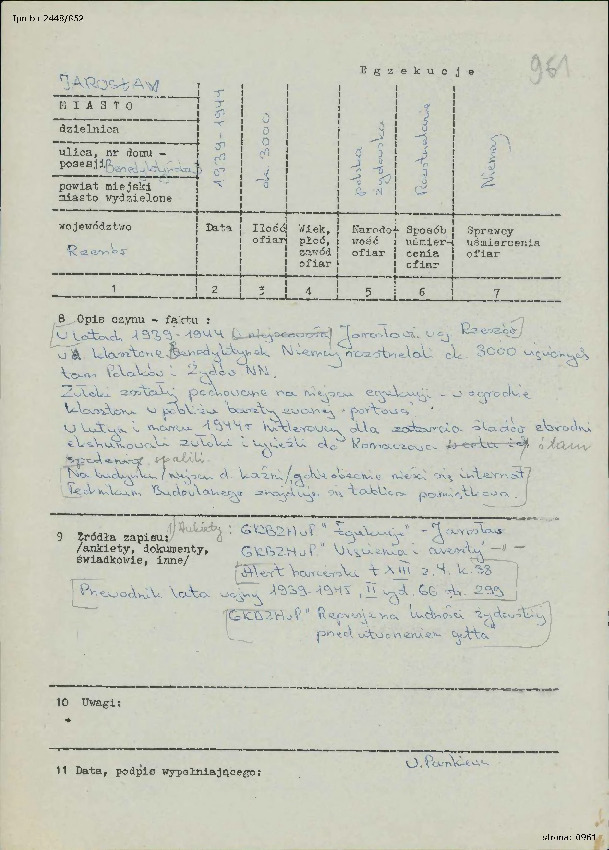 Ipn bu 2448/652
Egzekucje
961
JAROSŁAW
MIASTO
dzielnica
ulica, nr domu -
posesji Benedyktyńska
powiat miejski
miasto wydzielone
województwo
Rzeszów
1939-1944
ok 3000
polska
żydowska
Rozstrzelanie
Niemcy
Data
Ilość
ofiar
Wiek,
płeć,
zawód
ofiar
Narodo-
wość
ofiar
Sposób
uśmier-
cenia
ofiar
Sprawcy
uśmiercenia
ofiar
1 2 3 4 5 6 7
8 Opis czynu - faktu :
W latach 1939-1944 w miejscowości Jarosław woj. Rzeszów
w klasztorze Benedyktynek Niemcy rozstrzelali ok. 3000 więzionych
tam Polaków i Żydów NN.
Zwłoki zostały pochowane na miejscu egzekucji - w ogrodzie
klasztoru w pobliżu baszty zwanej
W lutym i marcu 1944 r hitlerowcy dla zatarcia śladów zbrodni
ekshumowali zwłoki i wywieźli do i tam
spalili.
Na budynku /miejscu d. kaźni/, gdzie obecnie mieści się internat
Technikum Budowlanego znajduje się tablica pamiątkowa.
9 Źródła zapisu: Ankiety: GKBZHwP "Egzekucje" - Jarosław
/ankiety, dokumenty, GKBZHwP "Więzienia i areszty -"-
świadkowie, inne/
Alert harcerski t XIII z. 4. k. 38
Przewodnik lata wojny 1939-1945, II wyd. 66 str. 299
GKBZHwP "Represje na ludności żydowskiej
przed utworzeniem getta"
10 Uwagi:
11 Data, podpis wypełniającego:
strona: 0961